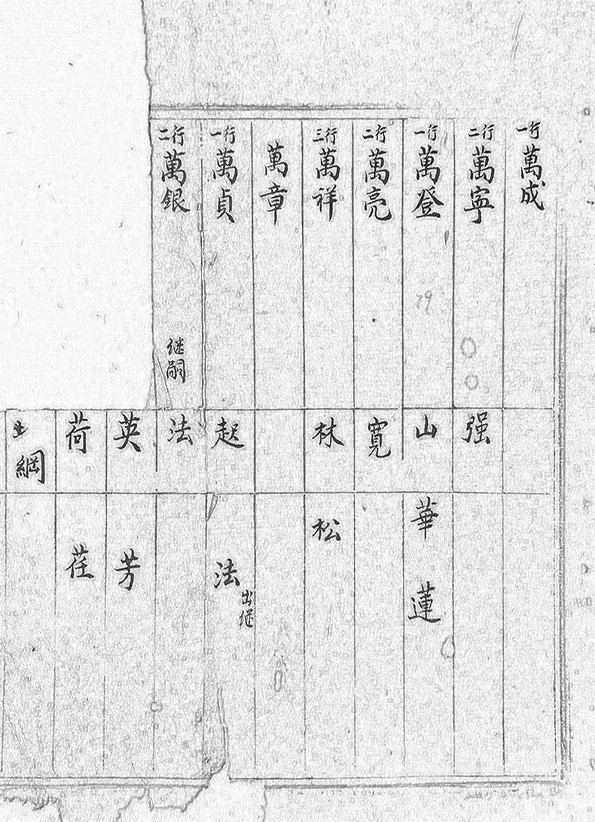 一行 萬成
二行 萬寧 强
一行 萬登 山 華 蓮
二行 萬亮 寬
三行 萬祥 林 松
萬章
一行 萬貞 起 法 出继
二行 萬銀 继嗣 法
英 芳
荷 荏
綱